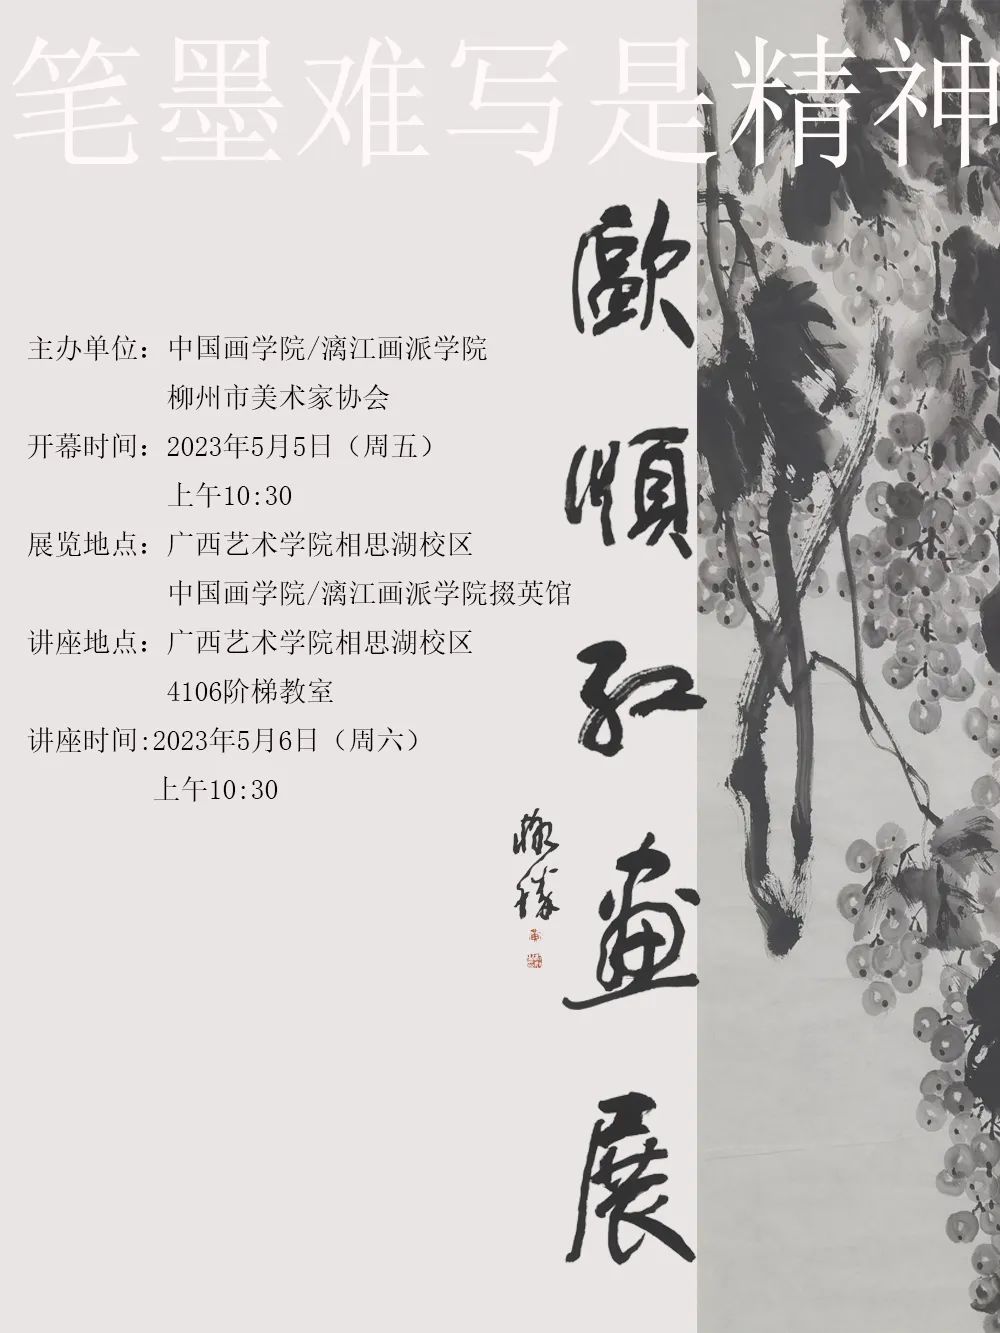 笔墨难写是精神
歐順紅畫展
主办单位：中国画学院/漓江画派学院
柳州市美术家协会
开幕时间：2023年5月5日（周五）
上午10:30
展览地点：广西艺术学院相思湖校区
中国画学院/漓江画派学院掇英馆
讲座地点：广西艺术学院相思湖校区
4106阶梯教室
讲座时间:2023年5月6日（周六）
上午10:30